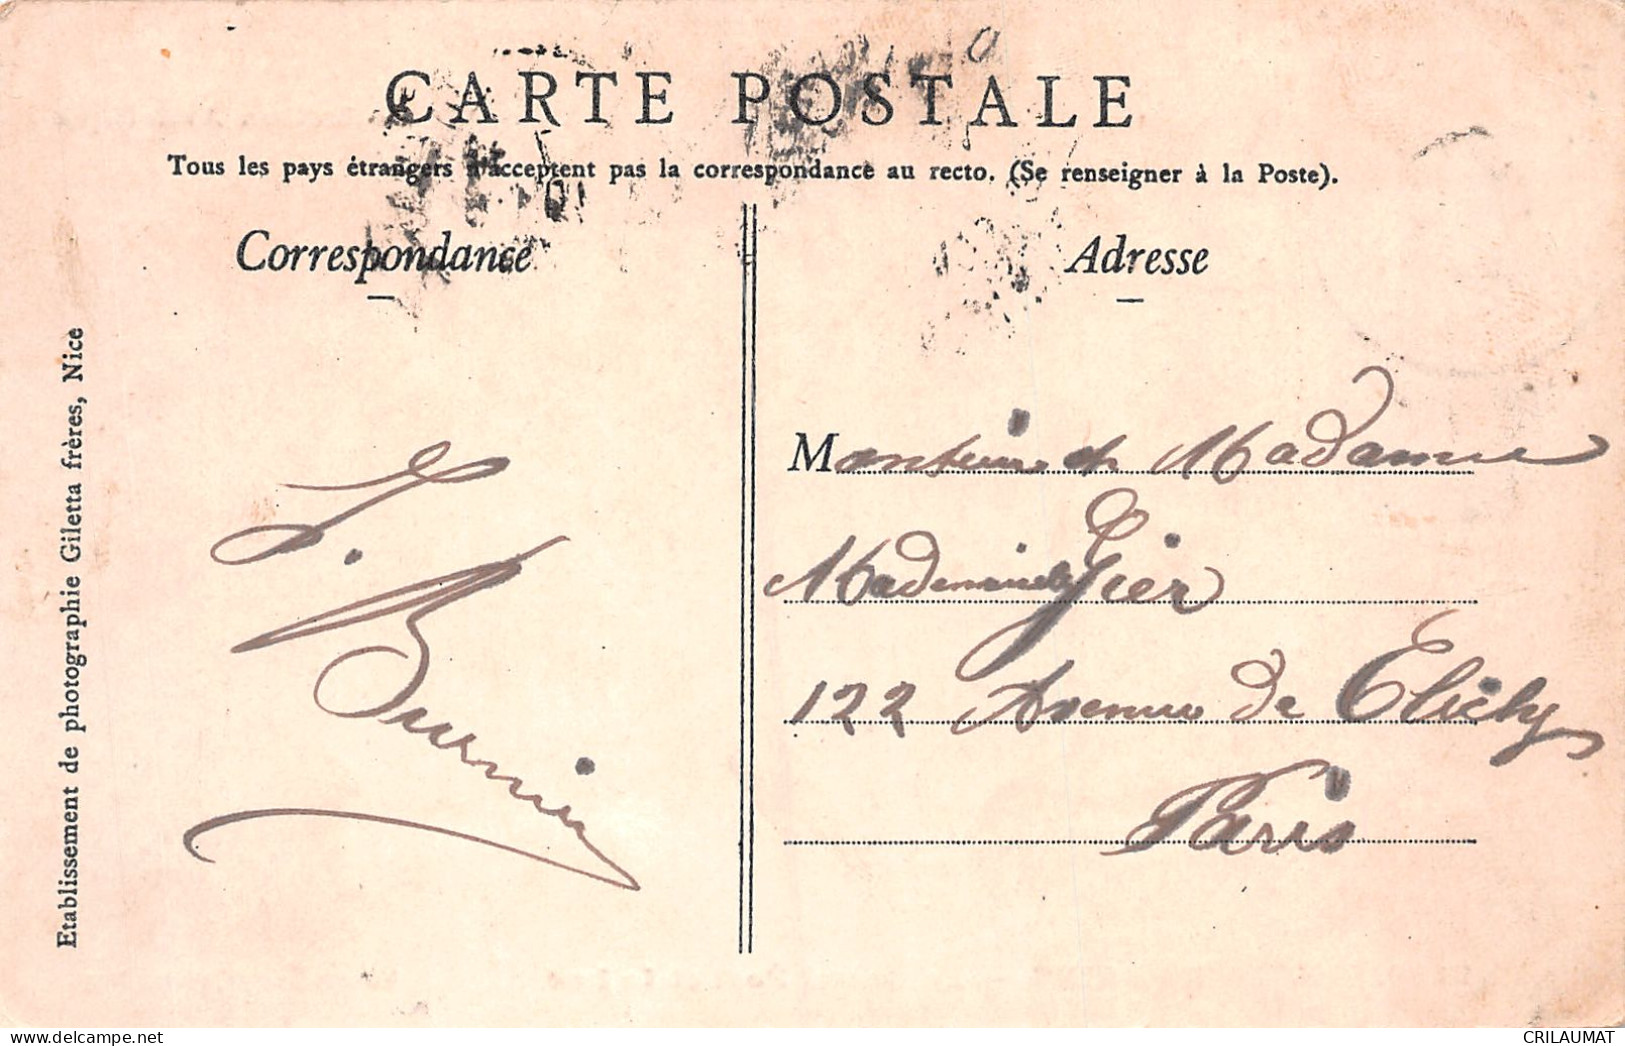 CARTE POSTALE
Tous les pays étrangers n'acceptent pas la correspondance au recto. (Se renseigner à la Poste).
Correspondance
Adresse
Etablissement de photographie Giletta frères, Nice
Monsieur et Madame
Mademoiselle Gier
122 Avenue de Clichy
Paris
CRILAUMAT